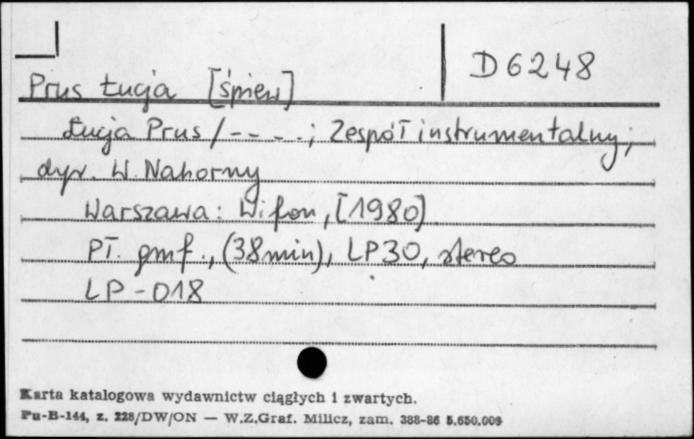 D 6248
Prus Łucja [śpiew]
Łucja Prus / - - - . ; Zespół instrumentalny ;
dyr. W. Nahorny
Warszawa : Wifon, [1980]
Pł. gmf., (38 min), LP30, stereo
LP - 018
Karta katalogowa wydawnictw ciągłych i zwartych.
Pu-B-144, z. 228/DW/ON — W.Z.Graf. Milicz, zam. 388-86 5.650.000